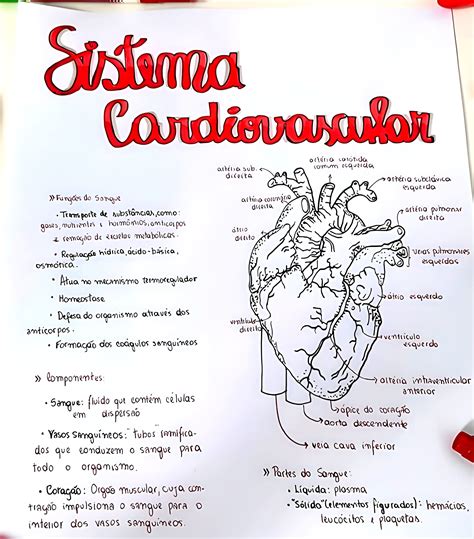 Sistema
Cardiovascular
» Funções do Sangue
• Transporte de substâncias, como:
gases, nutrientes e hormônios, anticorpos
e remoção de excretas metabólicas.
• Regulação hídrica, ácido-básica,
osmótica.
• Atua no mecanismo termoregulador
• Homeostase
• Defesa do organismo através dos
anticorpos.
• Formação dos coágulos sanguíneos
» Componentes:
• Sangue: fluido que contém células
em dispersão
• Vasos Sanguíneos: "tubos" ramifica-
dos que conduzem o sangue para
todo o organismo.
• Coração: Orgão muscular, cuja con-
tração impulsiona o sangue para o
interior dos vasos sanguíneos.
artéria sub.
direita
artéria carótida
comum esquerda
artéria subclávica
esquerda
artéria coronária
direita
artéria pulmonar
direita
átrio
direito
veias pulmonares
esquerdas
átrio esquerdo
ventrículo
direito
ventrículo
esquerdo
artéria intraventricular
anterior
ápice do coração
aorta descendente
veia cava inferior
» Partes do Sangue:
• Líquida: plasma
• "Sólida" (elementos figurados): hemácias,
leucócitos e plaquetas.